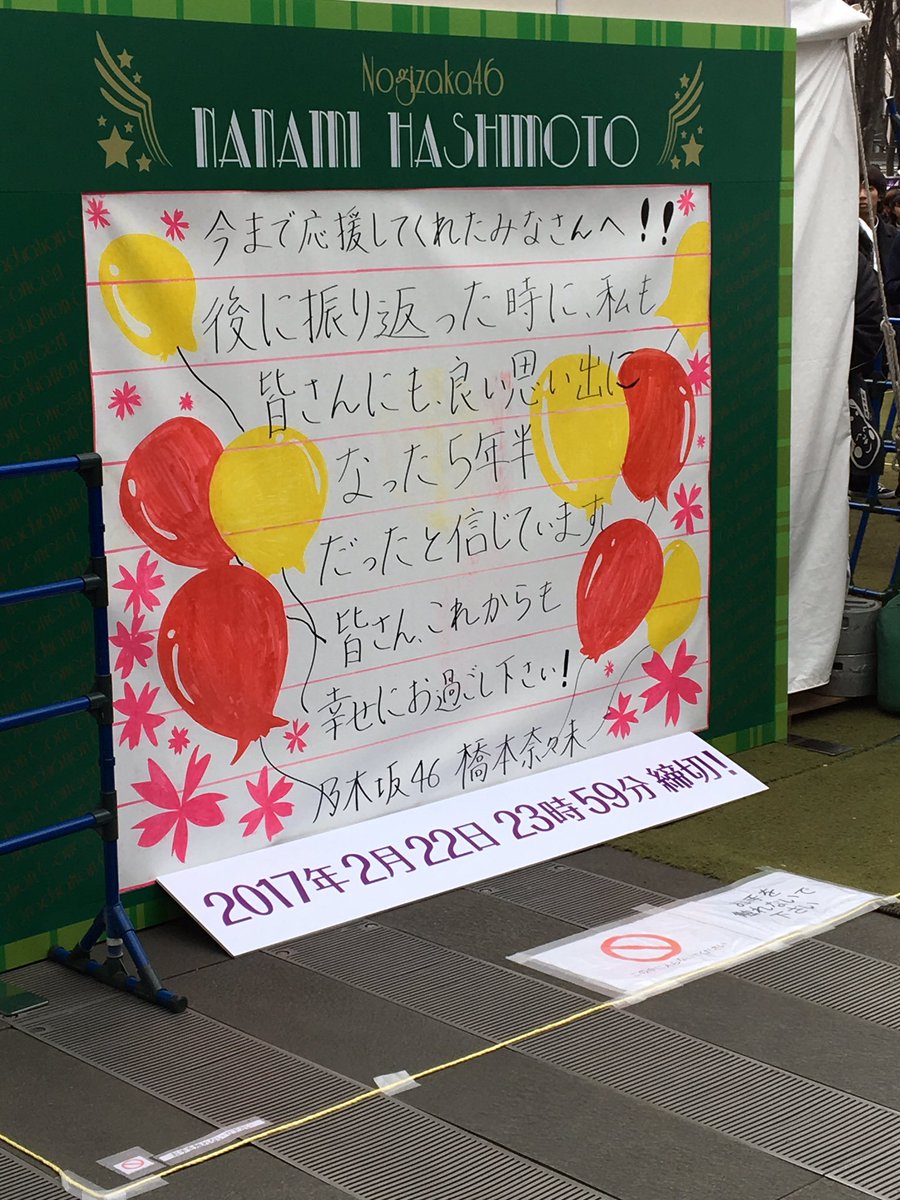 Nogizaka46
NANAMI HASHIMOTO
今まで応援してくれたみなさんへ!!
後に振り返った時に、私も
皆さんにも、良い思い出に
なった5年半
だったと信じています
皆さん、これからも
幸せにお過ごし下さい!
乃木坂46 橋本奈々未
2017年2月22日 23時59分 締切!
お手を
触れないで
下さい